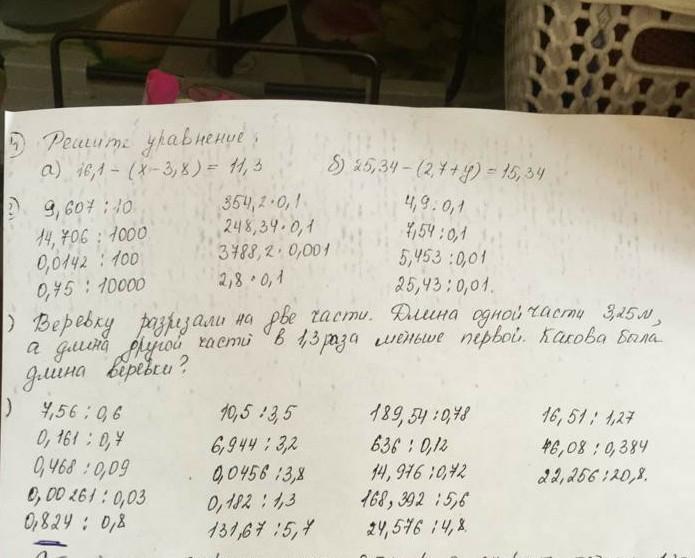 Решите уравнение.
а) 16,1 - (х - 3,8) = 11,3 б) 25,34 - (2,7 + у) = 15,34
9,607 : 10 354,2 · 0,1 4,9 : 0,1
14,706 : 1000 248,34 · 0,1 7,54 : 0,1
0,0142 : 100 3788,2 · 0,001 5,453 : 0,01
0,75 : 10000 2,8 · 0,1 25,43 : 0,01.
) Веревку разрезали на две части. Длина одной части 3,25 м,
а длина другой части в 1,3 раза меньше первой. Какова была
длина веревки?
) 7,56 : 0,6 10,5 : 3,5 189,54 : 0,78 16,51 : 1,27
0,161 : 0,7 6,944 : 3,2 636 : 0,12 46,08 : 0,384
0,468 : 0,09 0,0456 : 3,8 14,976 : 0,72 22,256 : 20,8.
0,00261 : 0,03 0,182 : 1,3 168,392 : 5,6
0,824 : 0,8 131,67 : 5,7 24,576 : 4,8.